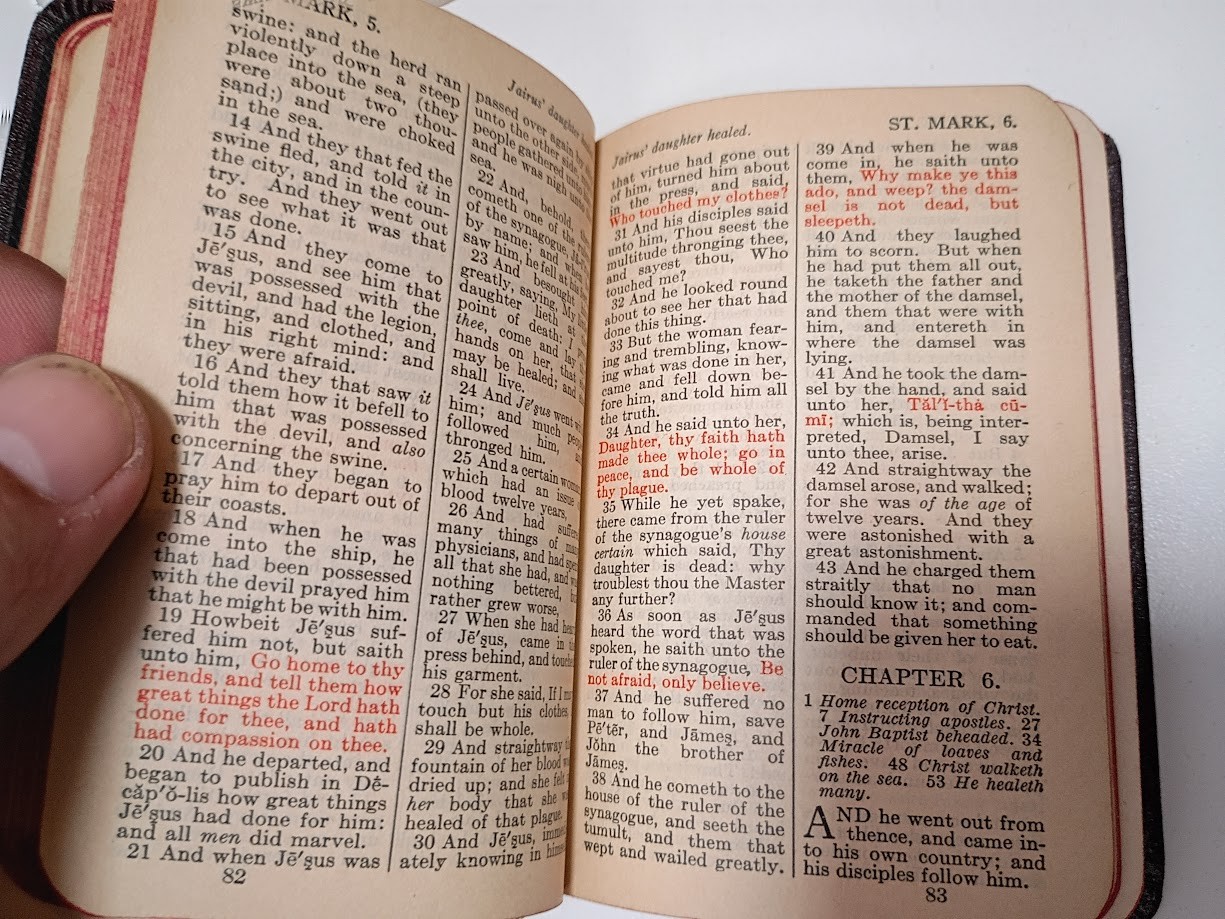 MARK, 5.
swine: and the herd ran
violently down a steep
place into the sea, (they
were about two thou-
sand;) and were choked
in the sea.
14 And they that fed the
swine fled, and told it in
the city, and in the coun-
try. And they went out
to see what it was that
was done.
15 And they come to
Jē′ṣus, and see him that
was possessed with the
devil, and had the legion,
sitting, and clothed, and
in his right mind: and
they were afraid.
16 And they that saw it
told them how it befell to
him that was possessed
with the devil, and also
concerning the swine.
17 And they began to
pray him to depart out of
their coasts.
18 And when he was
come into the ship, he
that had been possessed
with the devil prayed him
that he might be with him.
19 Howbeit Jē′ṣus suf-
fered him not, but saith
unto him, Go home to thy
friends, and tell them how
great things the Lord hath
done for thee, and hath
had compassion on thee.
20 And he departed, and
began to publish in Dē-
căp′ŏ-lis how great things
Jē′ṣus had done for him:
and all men did marvel.
21 And when Jē′ṣus was
82
Jairus' daughter
passed over again by
unto the other side,
people gathered unto
and he was nigh unto
sea.
22 And, behold,
cometh one of the
of the synagogue,
by name; and when
saw him, he fell at his
23 And besought
greatly, saying, My
daughter lieth at
point of death: I
thee, come and lay
hands on her, that
may be healed; and
shall live.
24 And Jē′ṣus went
him; and much
followed him,
thronged him.
25 And a certain
which had an issue
blood twelve years,
26 And had
many things of
physicians, and had
all that she had, and
nothing bettered,
rather grew worse,
27 When she had
of Jē′ṣus, came in
press behind, and
his garment.
28 For she said, If I
touch but his clothes,
shall be whole.
29 And straightway
fountain of her blood
dried up; and she felt
her body that she
healed of that plague.
30 And Jē′ṣus,
ately knowing in
Jairus' daughter healed.
that virtue had gone out
of him, turned him about
in the press, and said,
Who touched my clothes?
31 And his disciples said
unto him, Thou seest the
multitude thronging thee,
and sayest thou, Who
touched me?
32 And he looked round
about to see her that had
done this thing.
33 But the woman fear-
ing and trembling, know-
ing what was done in her,
came and fell down be-
fore him, and told him all
the truth.
34 And he said unto her,
Daughter, thy faith hath
made thee whole; go in
peace, and be whole of
thy plague.
35 While he yet spake,
there came from the ruler
of the synagogue's house
certain which said, Thy
daughter is dead: why
troublest thou the Master
any further?
36 As soon as Jē′ṣus
heard the word that was
spoken, he saith unto the
ruler of the synagogue, Be
not afraid, only believe.
37 And he suffered no
man to follow him, save
Pē′tẽr, and Jāmeṣ, and
Jŏhn the brother of
Jāmeṣ.
38 And he cometh to the
house of the ruler of the
synagogue, and seeth the
tumult, and them that
wept and wailed greatly.
ST. MARK, 6.
39 And when he was
come in, he saith unto
them, Why make ye this
ado, and weep? the dam-
sel is not dead, but
sleepeth.
40 And they laughed
him to scorn. But when
he had put them all out,
he taketh the father and
the mother of the damsel,
and them that were with
him, and entereth in
where the damsel was
lying.
41 And he took the dam-
sel by the hand, and said
unto her, Tăl′ĭ-thȧ cū-
mī; which is, being inter-
preted, Damsel, I say
unto thee, arise.
42 And straightway the
damsel arose, and walked;
for she was of the age of
twelve years. And they
were astonished with a
great astonishment.
43 And he charged them
straitly that no man
should know it; and com-
manded that something
should be given her to eat.
CHAPTER 6.
1 Home reception of Christ.
7 Instructing apostles. 27
John Baptist beheaded. 34
Miracle of loaves and
fishes. 48 Christ walketh
on the sea. 53 He healeth
many.
AND he went out from
thence, and came in-
to his own country; and
his disciples follow him.
83